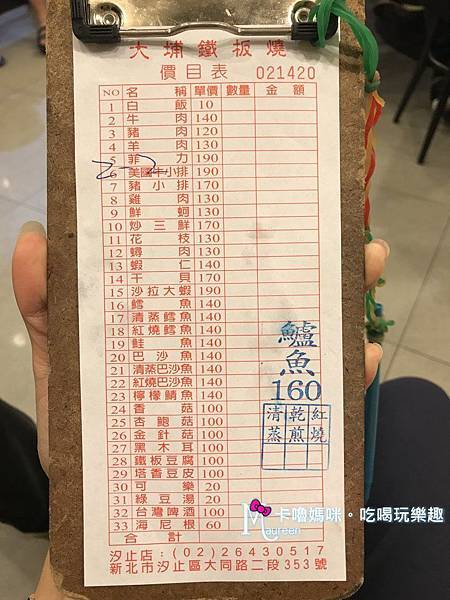 大埔鐵板燒
價目表 021420
NO 名稱 單價 數量 金額
1 白飯 10
2 牛肉 140
3 豬肉 120
4 羊肉 130
5 菲力 190
6 美國牛小排 190
7 豬小排 170
8 雞肉 130
9 鮮蚵 130
10 炒三鮮 170
11 花枝 130
12 蟳肉 130
13 蝦仁 140
14 干貝 170
15 沙拉大蝦 190
16 鱈魚 140
17 清蒸鱈魚 140
18 紅燒鱈魚 140
19 鮭魚 140
20 巴沙魚 140
21 清蒸巴沙魚 140
22 紅燒巴沙魚 140
23 檸檬鯖魚 140
24 香菇 100
25 杏鮑菇 100
26 金針菇 100
27 黑木耳 100
28 鐵板豆腐 100
29 塔香豆皮 100
30 可樂 20
31 綠豆湯 20
32 台灣啤酒 100
33 海尼根 60
合計
鱸魚
160
清蒸 乾煎 紅燒
汐止店：(02)26430517
新北市汐止區大同路二段353號
卡嚕媽咪。吃喝玩樂趣
Maureen